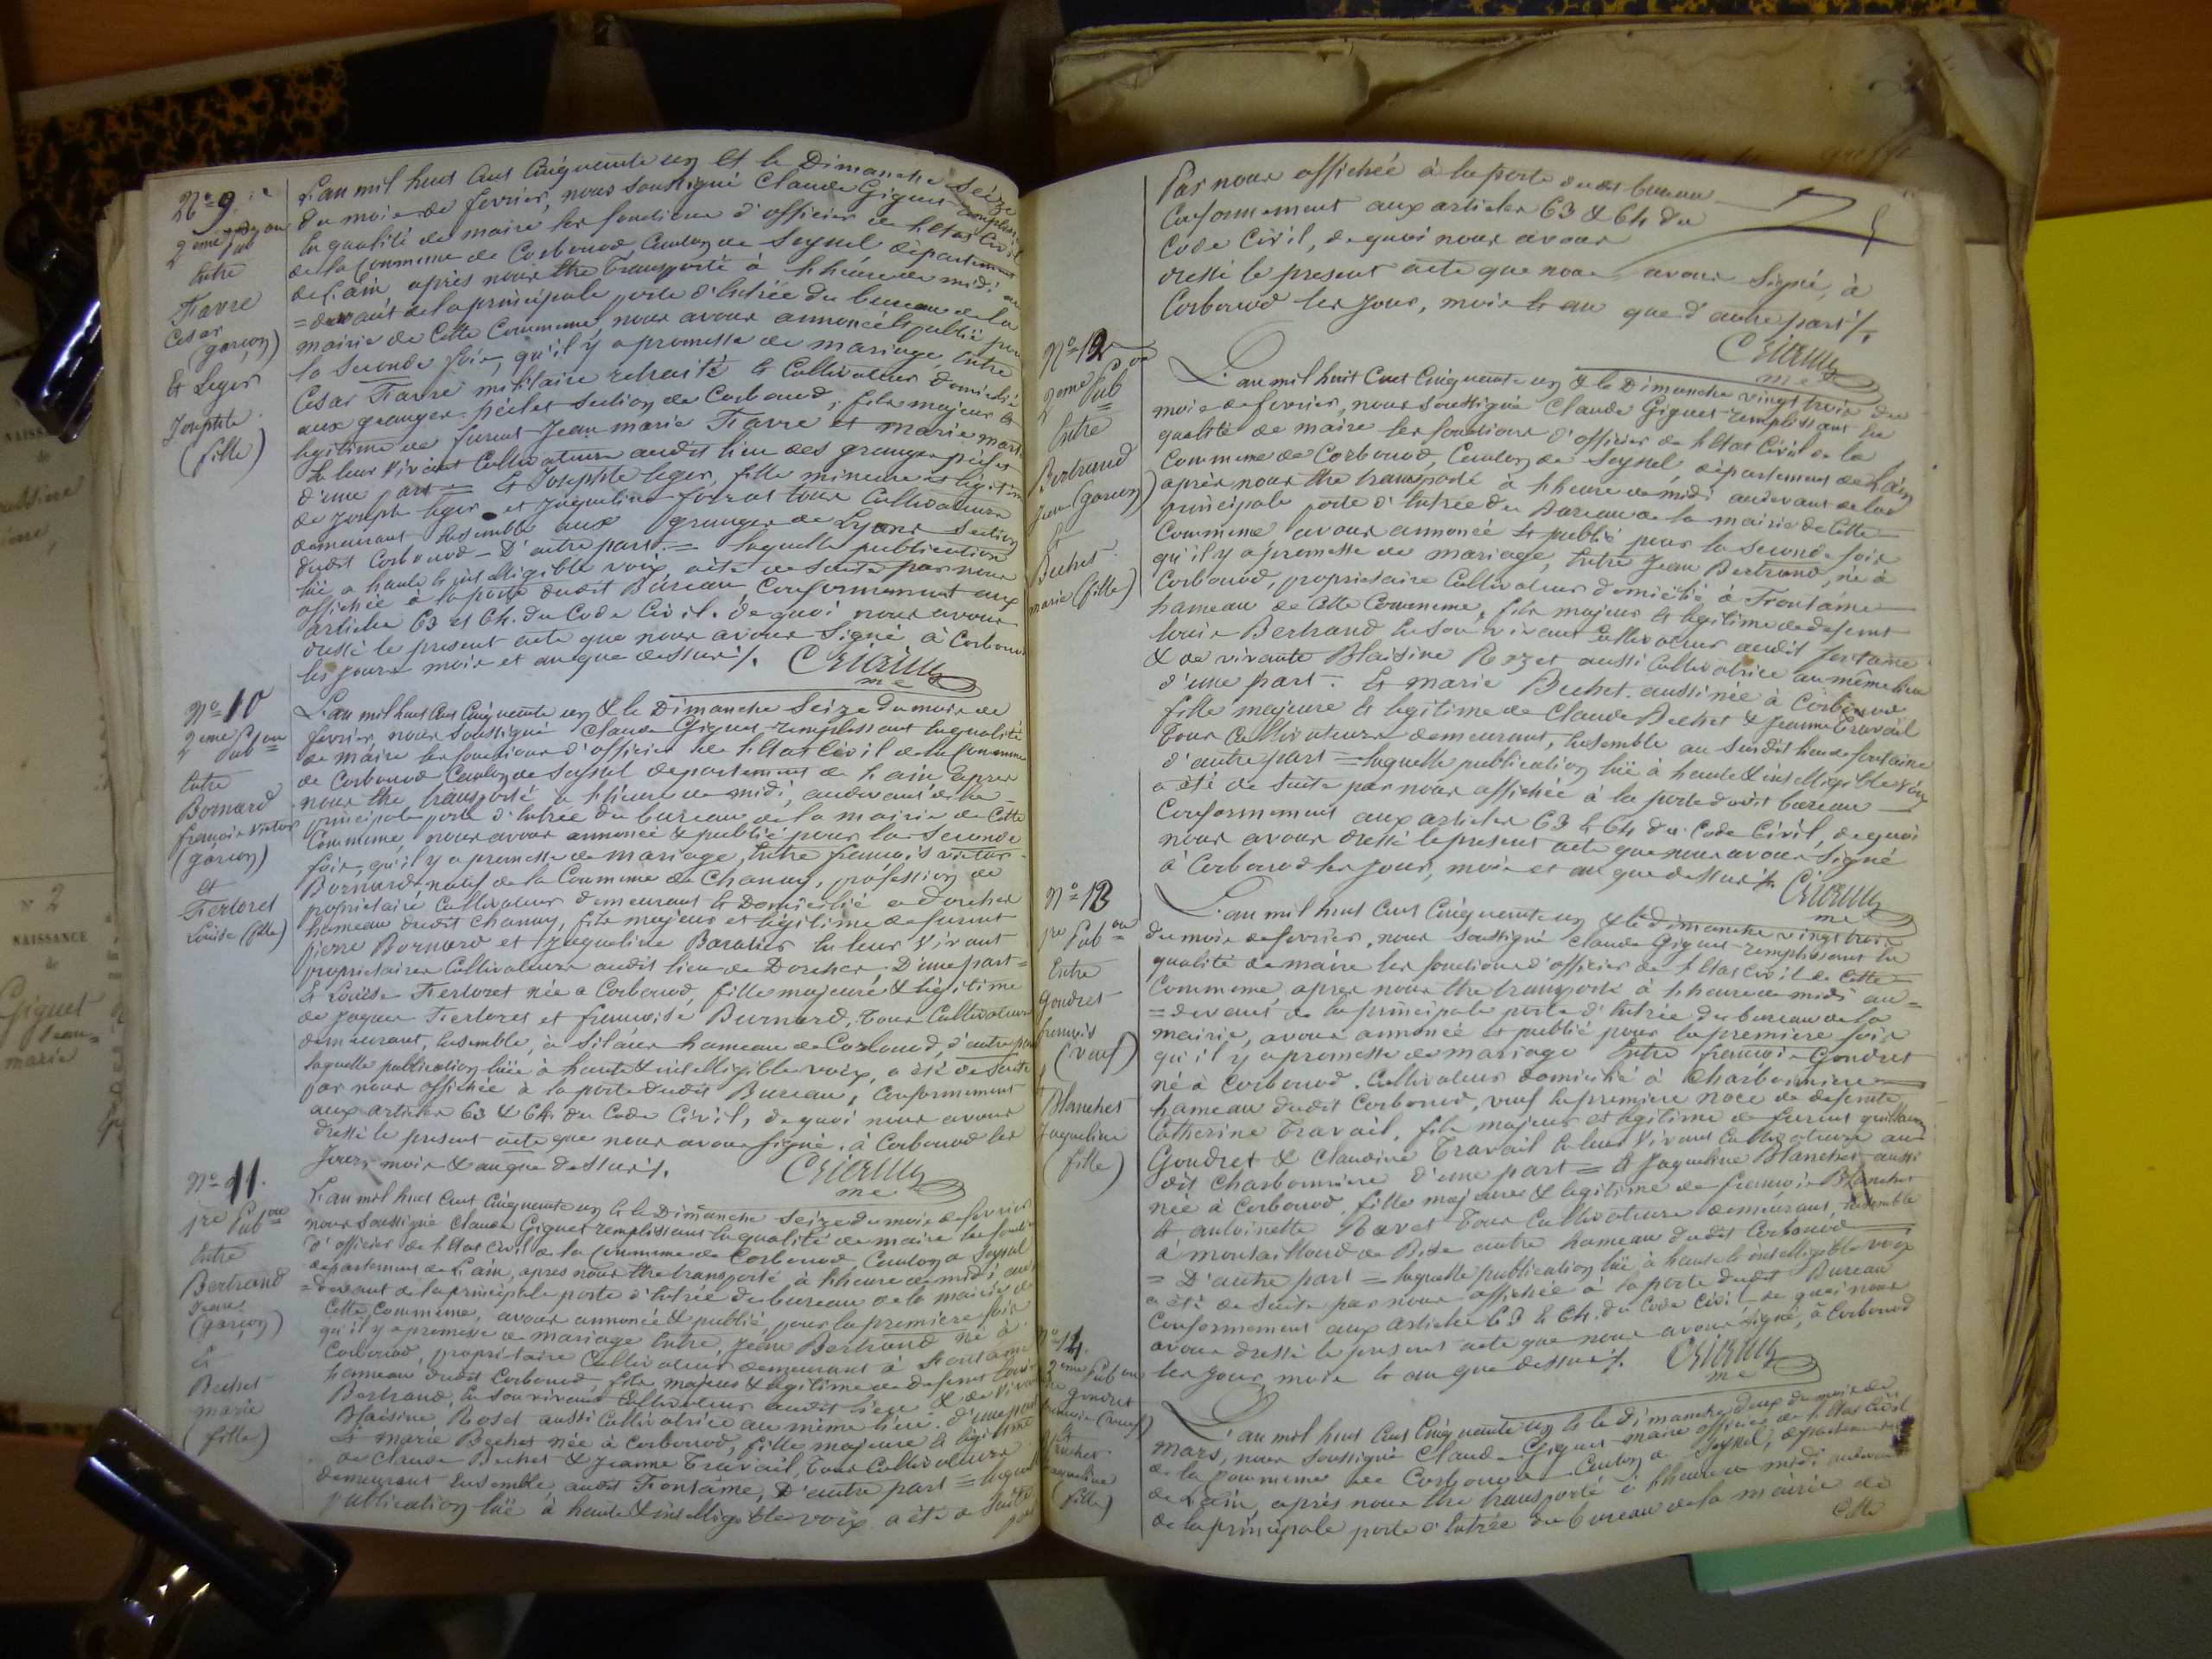 N° 9
2eme Pub
Entre
Favre
Cesar
(garçon)
Et Leger
Josephte
(fille)
L'an mil huit cent cinquante un et le Dimanche seize
du mois de fevrier, nous soussigné Claude Giguet remplissant
la qualité de maire les fonctions d'officier de l'Etat Civil
de la Commune de Corbonod Canton de Seyssel département
de l'ain après nous être transporté à l'heure de midi au
=devant de la principale porte d'Entrée du bureau de la
mairie de cette Commune, nous avons annoncé et publié pour
la seconde fois, qu'il y a promesse de mariage, Entre
Cesar Favre militaire retraité et Cultivateur domicilié
aux granges section de Corbonod, fils majeur et
legitime de furent Jean marie Favre et marie
de leur vivant Cultivateurs audit lieu des granges
d'une part = Et Josephte leger, fille mineure et légitime
de Joseph leger et Jaqueline tous Cultivateurs
demeurant Ensemble aux granges de Lyons Section
dudit Corbonod – D'autre part. = laquelle publication
lüe a haute et intelligible voix, a été de suite par nous
affichée à la porte dudit Bureau, Conformement aux
articles 63 et 64. du Code Civil. de quoi nous avons
dressé le present acte que nous avons signé à Corbonod
les jours mois et an que dessus ⁒.
me
N° 10
2eme Pub on
Entre
Bornard
françois victor
(garçon)
et
Fertoret
Louise (fille)
L'an mil huit cent cinquante un & le Dimanche Seize du mois de
fevrier nous soussigné Claude Giguet remplissant la qualité
de maire les fonctions d'officier de l'Etat Civil de la Commune
de Corbonod Canton de Seyssel departement de l'ain apres
nous être transporté à l'heure de midi, audevant de la
principale porte d'Entrée du bureau de la mairie de Cette
Commune, nous avons annoncé & publié pour la Seconde
fois, qu'il y a promesse de mariage, Entre françois victor
Bornard natif de la Commune de Chanay, profession de
propriétaire Cultivateur demeurant et Domicilié a dorches
hameau dudit Chanay, fils majeur et légitime de furent
pierre Bornard et Jaqueline en leur vivant
proprietaires Cultivateurs audit lieu de Dorches. D'une part =
Et Louise Fertoret née a Corbonod, fille majeure & légitime
de Jaques Fertoret et françoise Burnard, tous Cultivateurs
demeurant, Ensemble, à Silans hameau de Corbonod, d'autre part
laquelle publication lüe à haute & intelligible voix, a été de suite
par nous affichée à la porte dudit Bureau, Conformement
aux articles 63 & 64 du Code Civil, de quoi nous avons
dressé le present acte que nous avons signé. à Corbonod les
Jours, mois & an que dessus ⁒.
me
N° 11.
1re Pub on
Entre
Bertrand
Jean
(garçon)
Et
Bechet
marie
(fille)
L'an mil huit cent cinquante un & le Dimanche seize du mois de fevrier
nous soussigné Claude Giguet remplissant la qualité de maire les fonctions
d'officier de l'Etat Civil de la Commune de Corbonod, Canton de Seyssel
departement de L'ain, apres nous être transporté à l'heure de midi au
=devant de la principale porte d'Entrée du bureau de la mairie de
Cette Commune, avons annoncé & publié, pour la premiere fois
qu'il y a promesse de mariage Entre, Jean Bertrand né à
Corbonod, propriétaire Cultivateur demeurant à Fontaine
hameau dudit Corbonod, fils majeur & legitime de defunt Louis
Bertrand, En son vivant Cultivateur audit lieu & de vivante
Blaisine Roset aussi Cultivatrice au même lieu. d'une part
Et marie Bechet née à Corbonod, fille majeure & legitime
de Claude Bechet & Jeanne Travail, tous Cultivateurs
demeurant Ensemble, audit Fontaine, D'autre part = laquelle
publication lüe à haute & intelligible voix a été de suite
par
Par nous affichée à la porte dudit bureau
Conformement aux articles 63 & 64 du
Code Civil, de quoi nous avons
dressé le present acte que nous avons signé, à
Corbonod les jours, mois & an que d'autre part ⁒.
me
N° 12
2eme Pub
Entre
Bertrand
Jean (garçon)
Et
Bechet
marie (fille)
L'an mil huit cent cinquante un & le Dimanche vingt trois du
mois de fevrier, nous soussigné Claude Giguet remplissant la
qualité de maire les fonctions d'officier de l'Etat Civil de la
Commune de Corbonod, Canton de Seyssel, département de L'ain
après nous être transporté à l'heure de midi audevant de la
principale porte d'Entrée du Bureau de la mairie de Cette
Commune avons annoncé & publié pour la seconde fois
qu'il y a promesse de mariage, Entre Jean Bertrand, né à
Corbonod, propriétaire Cultivateur domicilié à Fontaine
hameau de Cette Commune, fils majeur & legitime de defunt
Louis Bertrand En son vivant Cultivateur audit fontaine
& de vivante Blaisine Rozet aussi Cultivatrice au même lieu
d'une part. Et marie Bechet aussi née à Corbonod
fille majeure & legitime de Claude Bechet & Jeanne Travail
Tous Cultivateurs demeurant, Ensemble au susdit lieu de fontaine
d'autre part = laquelle publication lüe à haute & intelligible voix
a été de suite par nous affichée à la porte dudit bureau
Conformement aux articles 63 & 64 du Code Civil, de quoi
nous avons dressé le present acte que nous avons signé
à Corbonod les Jours, mois et an que dessus ⁒.
me
N° 13
1re Pub on
Entre
Goudret
françois
(veuf)
Et
Blanchet
Jaqueline
(fille)
L'an mil huit cent cinquante un & le dimanche vingt trois
du mois de fevrier, nous soussigné Claude Giguet remplissant la
qualité de maire les fonctions d'officier de l'Etat Civil de Cette
Commune, apres nous être transporté à l'heure de midi au=
=devant de la principale porte d'Entrée du bureau de la
mairie, avons annoncé et publié pour la premiere fois
qu'il y a promesse de mariage Entre françois Goudret
né à Corbonod. Cultivateur domicilié à Charbonniere
hameau dudit Corbonod, veuf En premiere noce de defunte
Catherine Travail, fils majeur et legitime de furent guillaume
Goudret & Claudine Travail En leur vivant Cultivateurs au
dit Charbonniere d'une part = Et Jaqueline Blanchet aussi
née à Corbonod, fille majeure & legitime de françois Blanchet
& antoinette Ravet tous Cultivateurs demeurant, Ensemble
à autre hameau dudit Corbonod
= D'autre part = laquelle publication lüe à haute & intelligible voix
a été de suite par nous affichée à la porte dudit Bureau
Conformement aux articles 63 & 64. du Code Civil de quoi nous
avons dressé le present acte que nous avons signé, à Corbonod
les jour, mois & an que dessus ⁒.
me
N° 14.
2eme Pub on
goudret
françois (veuf)
Et
Blanchet
Jaqueline
(fille)
L'an mil huit cent cinquante un & le dimanche deux du mois de
mars, nous soussigné Claude Giguet maire officier de l'Etat Civil
de la Commune de Corbonod Canton de Seyssel, département
de L'ain, après nous être transporté à l'heure de midi audevant
de la principale porte d'Entrée du bureau de la mairie de
Cette
NAISSANCE
de
N° 2
NAISSANCE
de
Giguet
Jean=
marie